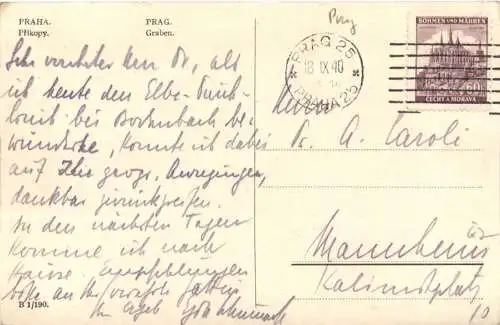 PRAHA.
Příkopy.
PRAG.
Graben.
Prag
PRAG 25
18 IX 40
PRAHA 25
BÖHMEN UND MÄHREN
ČECHY A MORAVA
Sehr verehrter Herr Dr, als
ich heute den Elbe-Durch-
bei Bodenbach be-
wunderte, konnte ich dabei
auf Ihre geogr. Anregungen,
dankbar zurückgreifen.
In den nächsten Tagen
komme ich nach
Hause. Empfehlungen
bitte an Ihre
Ihr ergeb
Herrn
Dr. A. Caroli
Mannheim
Kalimitplatz
10
B 1/190.